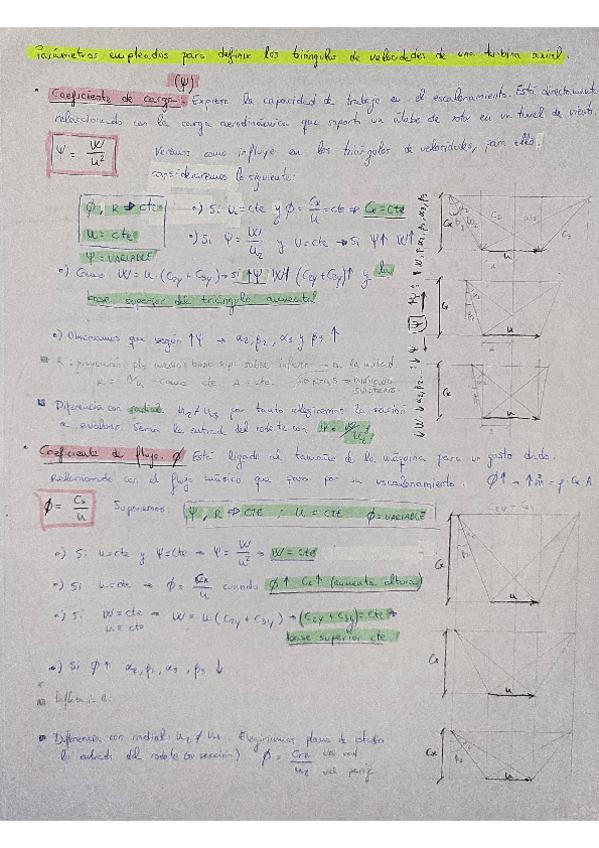 Parámetros empleados para definir los triángulos de velocidades de una turbina axial.
(Ψ)
• Coeficiente de carga: Expresa la capacidad de trabajo en el escalonamiento. Está directamente
relacionado con la carga aerodinámica que soporta un álabe de rotor en un túnel de viento.
Ψ = W/u² Veremos como influye en los triángulos de velocidades, para ello
consideraremos lo siguiente:
φ, R ⇒ cte •) Si u=cte y φ = Cx/u = cte ⇒ Cx=cte
u = cte •) Si Ψ = W/u² y U=cte → Si Ψ↑ W↑
Ψ = VARIABLE
•) Como W = u (C2y + C3y) → si ↑Ψ W↑ (C2y+C3y)↑ y la
base superior del triángulo aumenta
•) Observamos que según ↑Ψ → α2, β2, α3 y β3 ↑
Diferencia con radial u2≠u3 por tanto elegiremos la sección
a evaluar. Sería la entrada del rodete con Ψ=W/u2²
• Coeficiente de flujo. φ Está ligado al tamaño de la máquina para un gasto dado.
Relacionado con el flujo másico que pasa por un escalonamiento. φ↑ → ↑ṁ = ρ·Cx·A
φ = Cx/u Suponemos: Ψ, R ⇒ CTE ; u = CTE φ = VARIABLE
•) Si u=cte y Ψ=cte → Ψ = W/u² → W = cte
•) Si u=cte → φ = Cx/u cuando φ↑ Cx↑ (aumenta altura)
•) Si W=cte u=cte → W = u(C2y + C3y) → (C2y + C3y) = cte →
base superior cte.
•) Si φ↑ α2, β2, α3, β3 ↓
Diferencia con radial: u2 ≠ u3. Elegiríamos plano de estudio
la entrada del rodete (sección) φ = C2r/u2
Cx
u
Cx
u
Cx
u
Cx
u
Cx
u
Cx
u